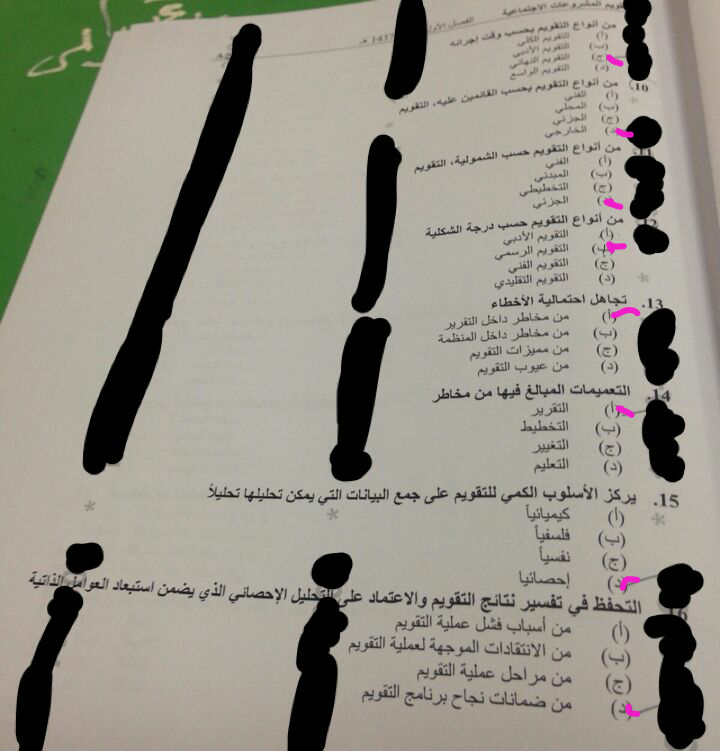 تقويم المشروعات الاجتماعية
الفصل الأول
1437 هـ
من أنواع التقويم بحسب وقت إجرائه
(أ) التقويم الكلي
(ب) التقويم الأدبي
(ج) التقويم النهائي
(د) التقويم الواسع
10. من أنواع التقويم بحسب القائمين عليه، التقويم
(أ) الفني
(ب) المحلي
(ج) الجزئي
(د) الخارجي
من أنواع التقويم حسب الشمولية، التقويم
(أ) الفني
(ب) المبدئي
(ج) التخطيطي
(د) الجزئي
12. من أنواع التقويم حسب درجة الشكلية
(أ) التقويم الأدبي
(ب) التقويم الرسمي
(ج) التقويم الفني
(د) التقويم التقليدي
13. تجاهل احتمالية الأخطاء
(أ) من مخاطر داخل التقرير
(ب) من مخاطر داخل المنظمة
(ج) من مميزات التقويم
(د) من عيوب التقويم
14. التعميمات المبالغ فيها من مخاطر
(أ) التقرير
(ب) التخطيط
(ج) التغيير
(د) التعليم
15. يركز الأسلوب الكمي للتقويم على جمع البيانات التي يمكن تحليلها تحليلاً
(أ) كيميائياً
(ب) فلسفياً
(ج) نفسياً
(د) إحصائيا
16 التحفظ في تفسير نتائج التقويم والاعتماد على التحليل الإحصائي الذي يضمن استبعاد العوامل الذاتية
(أ) من أسباب فشل عملية التقويم
(ب) من الانتقادات الموجهة لعملية التقويم
(ج) من مراحل عملية التقويم
(د) من ضمانات نجاح برنامج التقويم